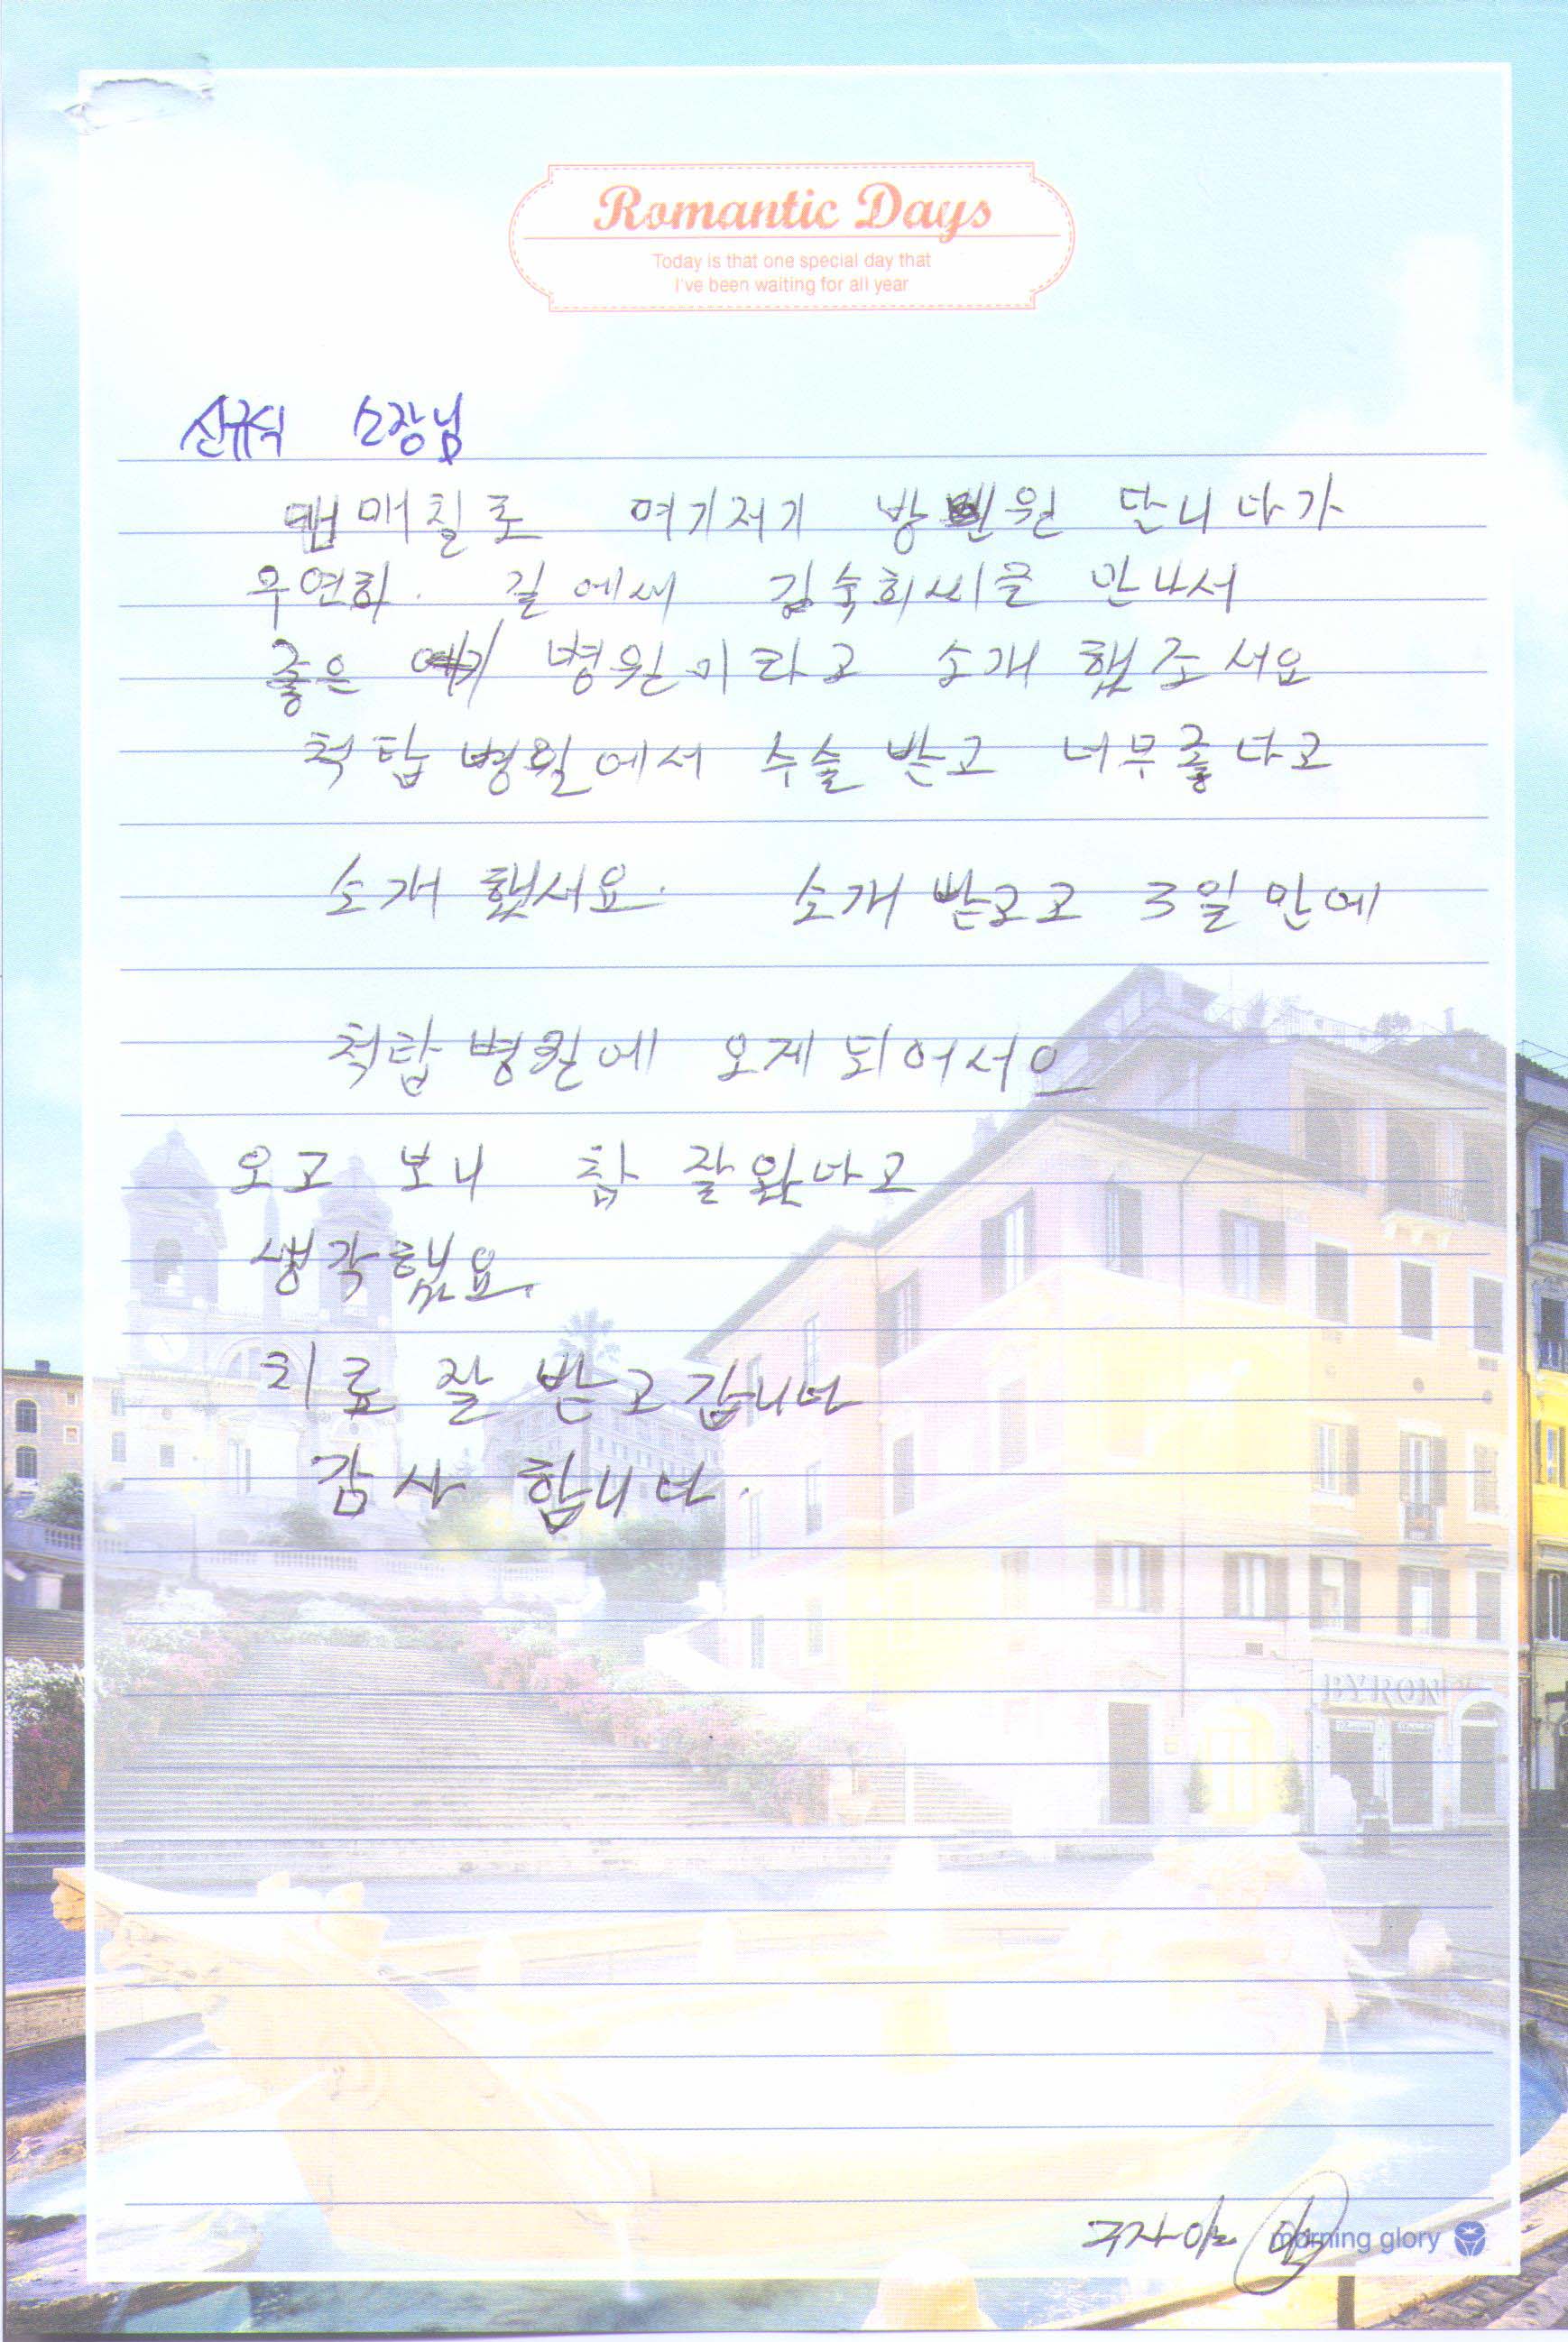 Romantic Days
Today is that one special day that
I've been waiting for all year
신규식 소장님
맵매칠로 여기저기 방 원 단니다가
우연히. 길에새 김숙희씨를 만나서
좋은 병원이라고 소개 했조서요
척탑 병원에서 수술 받고 너무좋다고
소개 했서요. 소개 받고고 3일만에
척탑 병원에 오게되어서요
오고 보니 참 잘왔다고
생각했요.
치료 잘 받고갑니다
감사 합니다.
BYRON
morning glory